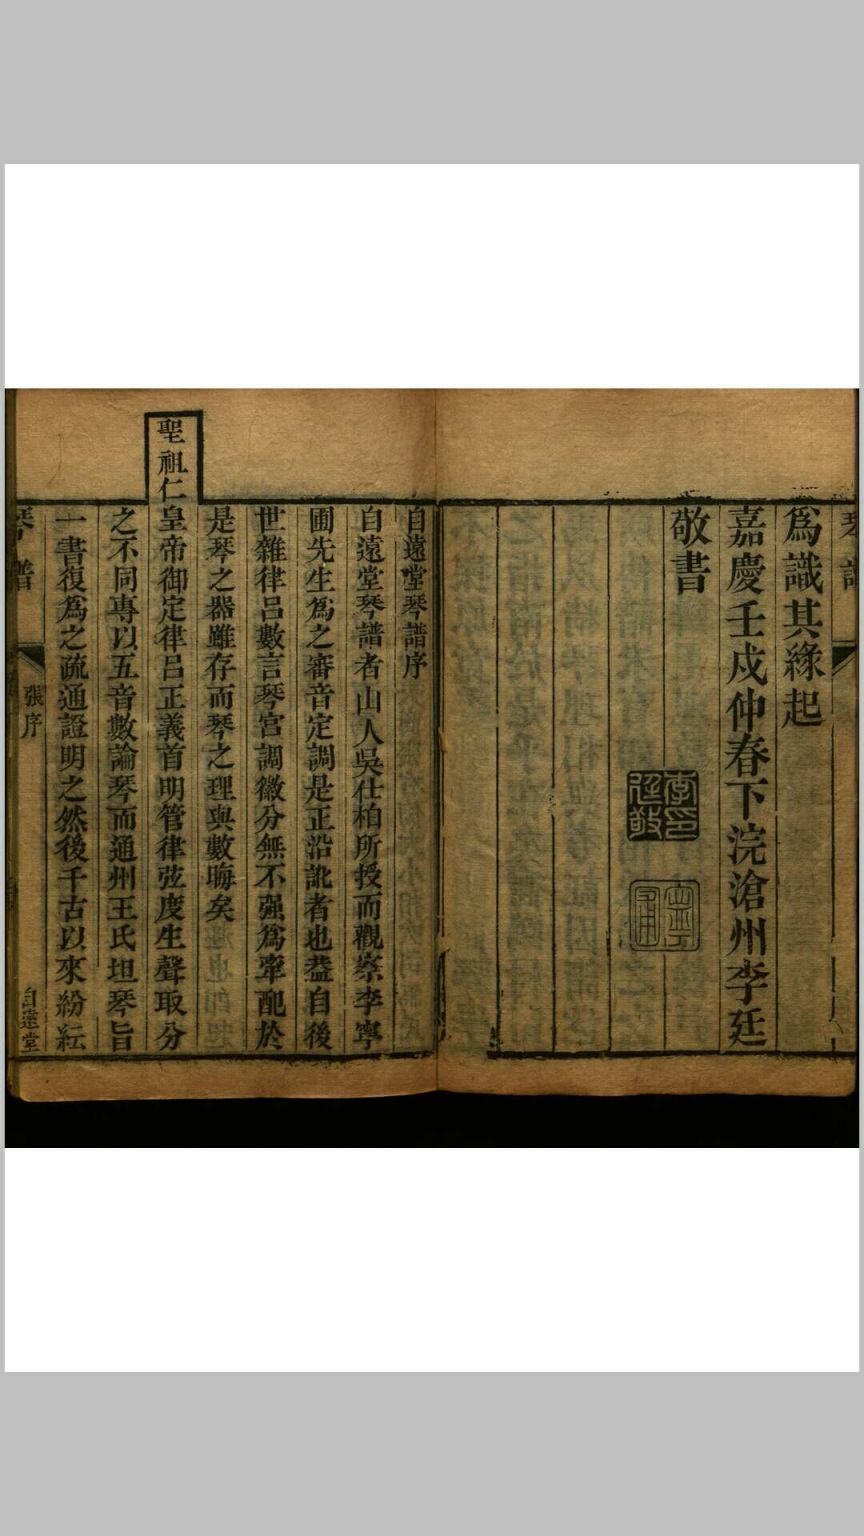 爲識其緣起
嘉慶壬戌仲春下浣滄州李廷
敬書
自遠堂琴譜序
自遠堂琴譜者山人吳仕柏所授而觀察李寧
圃先生爲之審音定調是正沿訛者也葢自後
世雜律呂數言琴宮調徽分無不强爲牽配於
是琴之器雖存而琴之理與數晦矣
聖祖仁皇帝御定律呂正義首明管律弦度生聲取分
之不同專以五音數論琴而通州王氏坦琴旨
一書復爲之疏通證明之然後千古以來紛紜
琴譜
張序
自遠堂